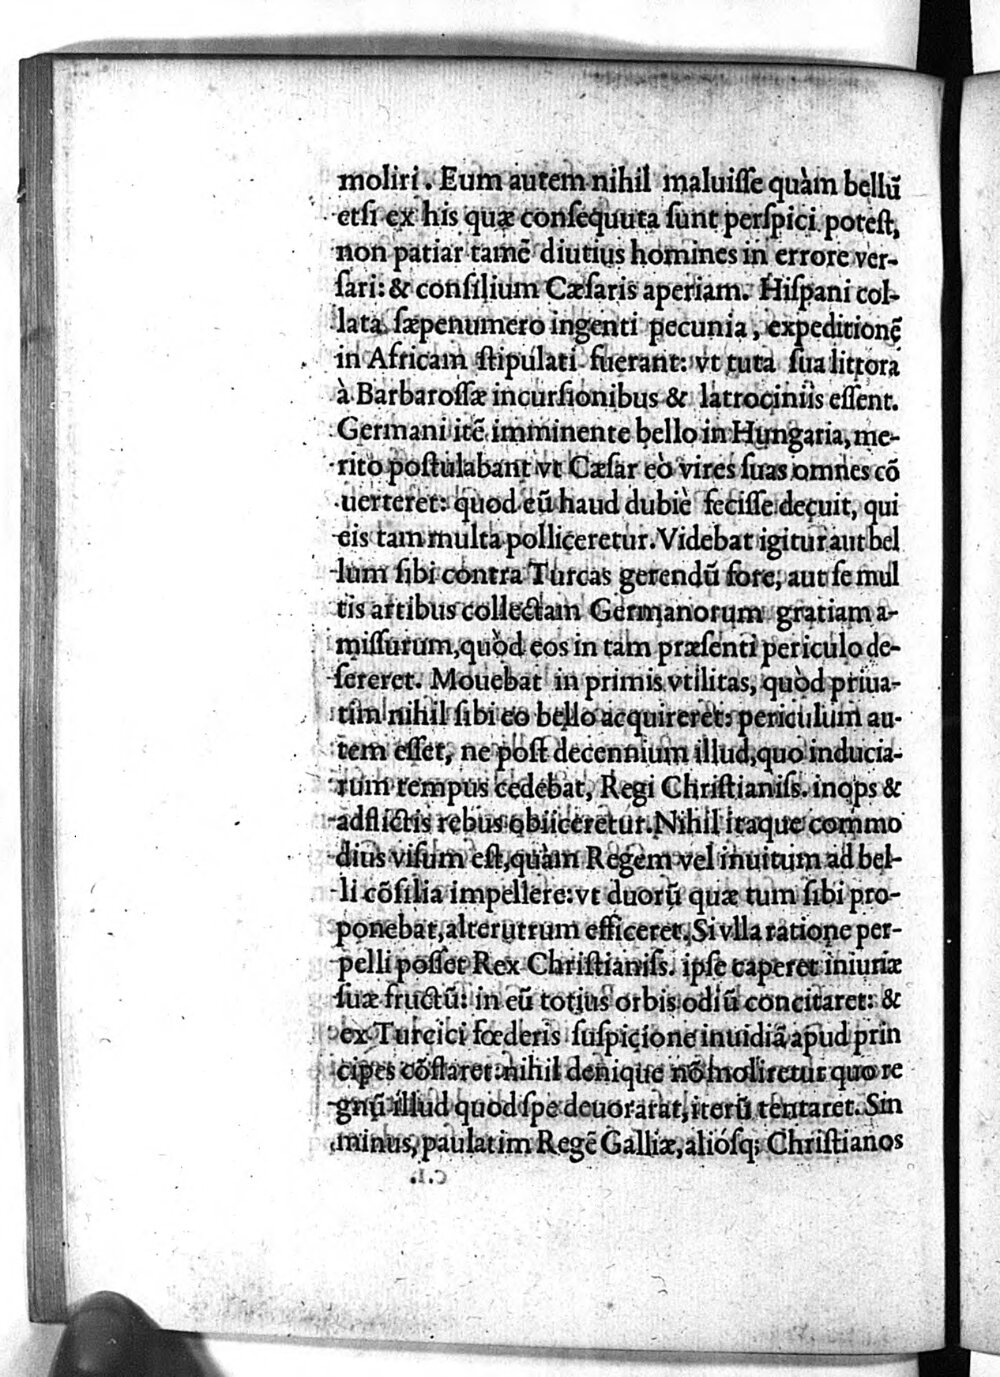 moliri. Eum autem nihil maluiſſe quàm bellũ
etſi ex his quæ conſequuta ſunt perſpici poteſt,
non patiar tamẽ diutius homines in errore ver-
ſari: & conſilium Cæſaris aperiam. Hiſpani col-
lata ſæpenumero ingenti pecunia, expeditionẽ
in Africam ſtipulati fuerant: vt tuta ſua littora
à Barbaroſſæ incurſionibus & latrociniis eſſent.
Germani itẽ imminente bello in Hungaria, me-
rito poſtulabant vt Cæſar eò vires ſuas omnes cõ
uerteret: quod eũ haud dubiè feciſſe decuit, qui
eis tam multa polliceretur. Videbat igitur aut bel
lum ſibi contra Turcas gerendũ fore, aut ſe mul
tis artibus collectam Germanorum gratiam a-
miſſurum, quòd eos in tam præſenti periculo de-
ſereret. Mouebat in primis vtilitas, quòd priua-
tim nihil ſibi eo bello acquireret: periculum au-
tem eſſet, ne poſt decennium illud, quo inducia-
rum tempus cedebat, Regi Chriſtianiſs. inops &
adflictis rebus obiiceretur. Nihil itaque commo
dius viſum eſt, quàm Regem vel inuitum ad bel-
li cõſilia impellere: vt duorũ quæ tum ſibi pro-
ponebat, alterutrum efficeret. Si vlla ratione per-
pelli poſſet Rex Chriſtianiſs. ipſe caperet iniuriæ
ſuæ fructũ: in eũ totius orbis odiũ concitaret: &
ex Turcici fœderis ſuſpicione inuidiã apud prin
cipes cõflaret: nihil denique nõ moliretur quo re
gnũ illud quod ſpe deuorarat, iterũ tentaret. Sin
minus, paulatim Regẽ Galliæ, alióſq; Chriſtianos